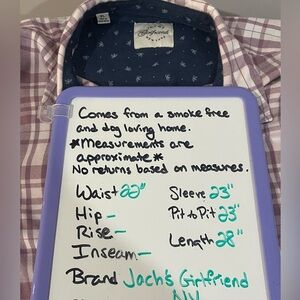 Comes from a smoke free
and dog loving home.
*Measurements are
approximate*
No returns based on measures.
Waist 22" Sleeve 23"
Hip - Pit to Pit 23"
Rise - Length 28"
Inseam -
Brand Jach's Girlfriend
NY
Girlfriend